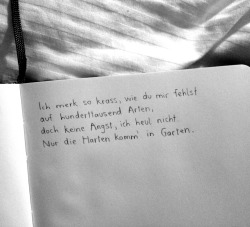 Ich merk so krass, wie du mir fehlst
auf hunderttausend Arten,
doch keine Angst, ich heul nicht.
Nur die Harten komm' in Garten.